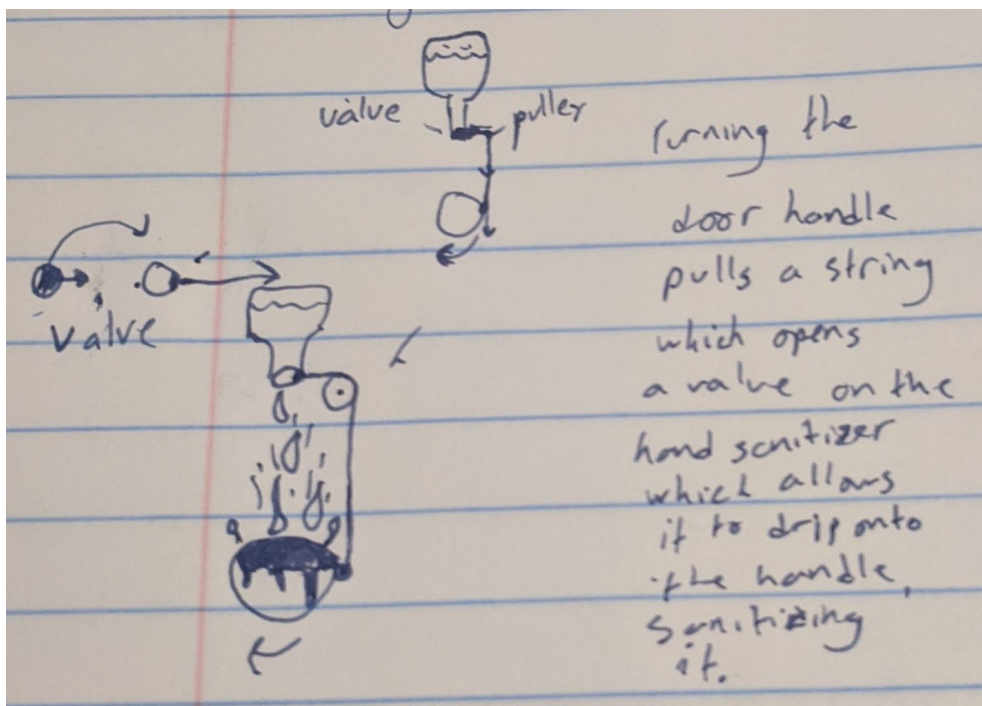 valve
puller
valve
Turning the
door handle
pulls a string
which opens
a valve on the
hand sanitizer
which allows
it to drip onto
the handle,
sanitizing
it.